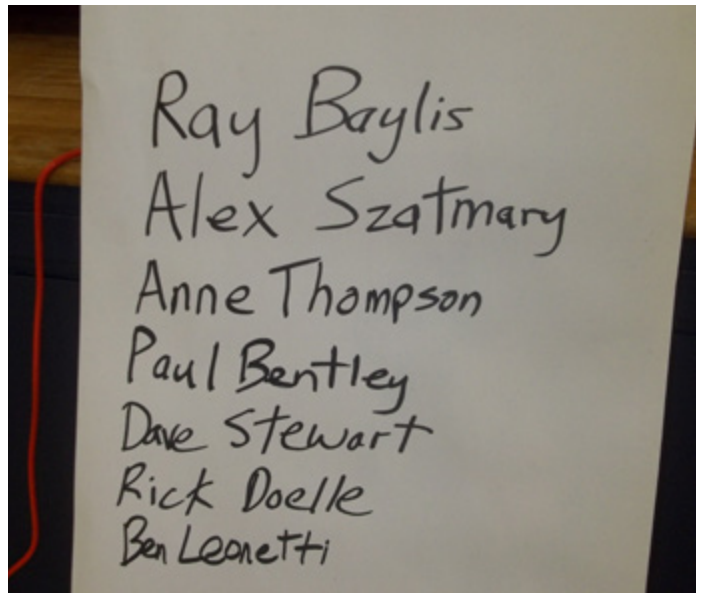 Ray Baylis
Alex Szatmary
Anne Thompson
Paul Bentley
Dave Stewart
Rick Doelle
Ben Leonetti